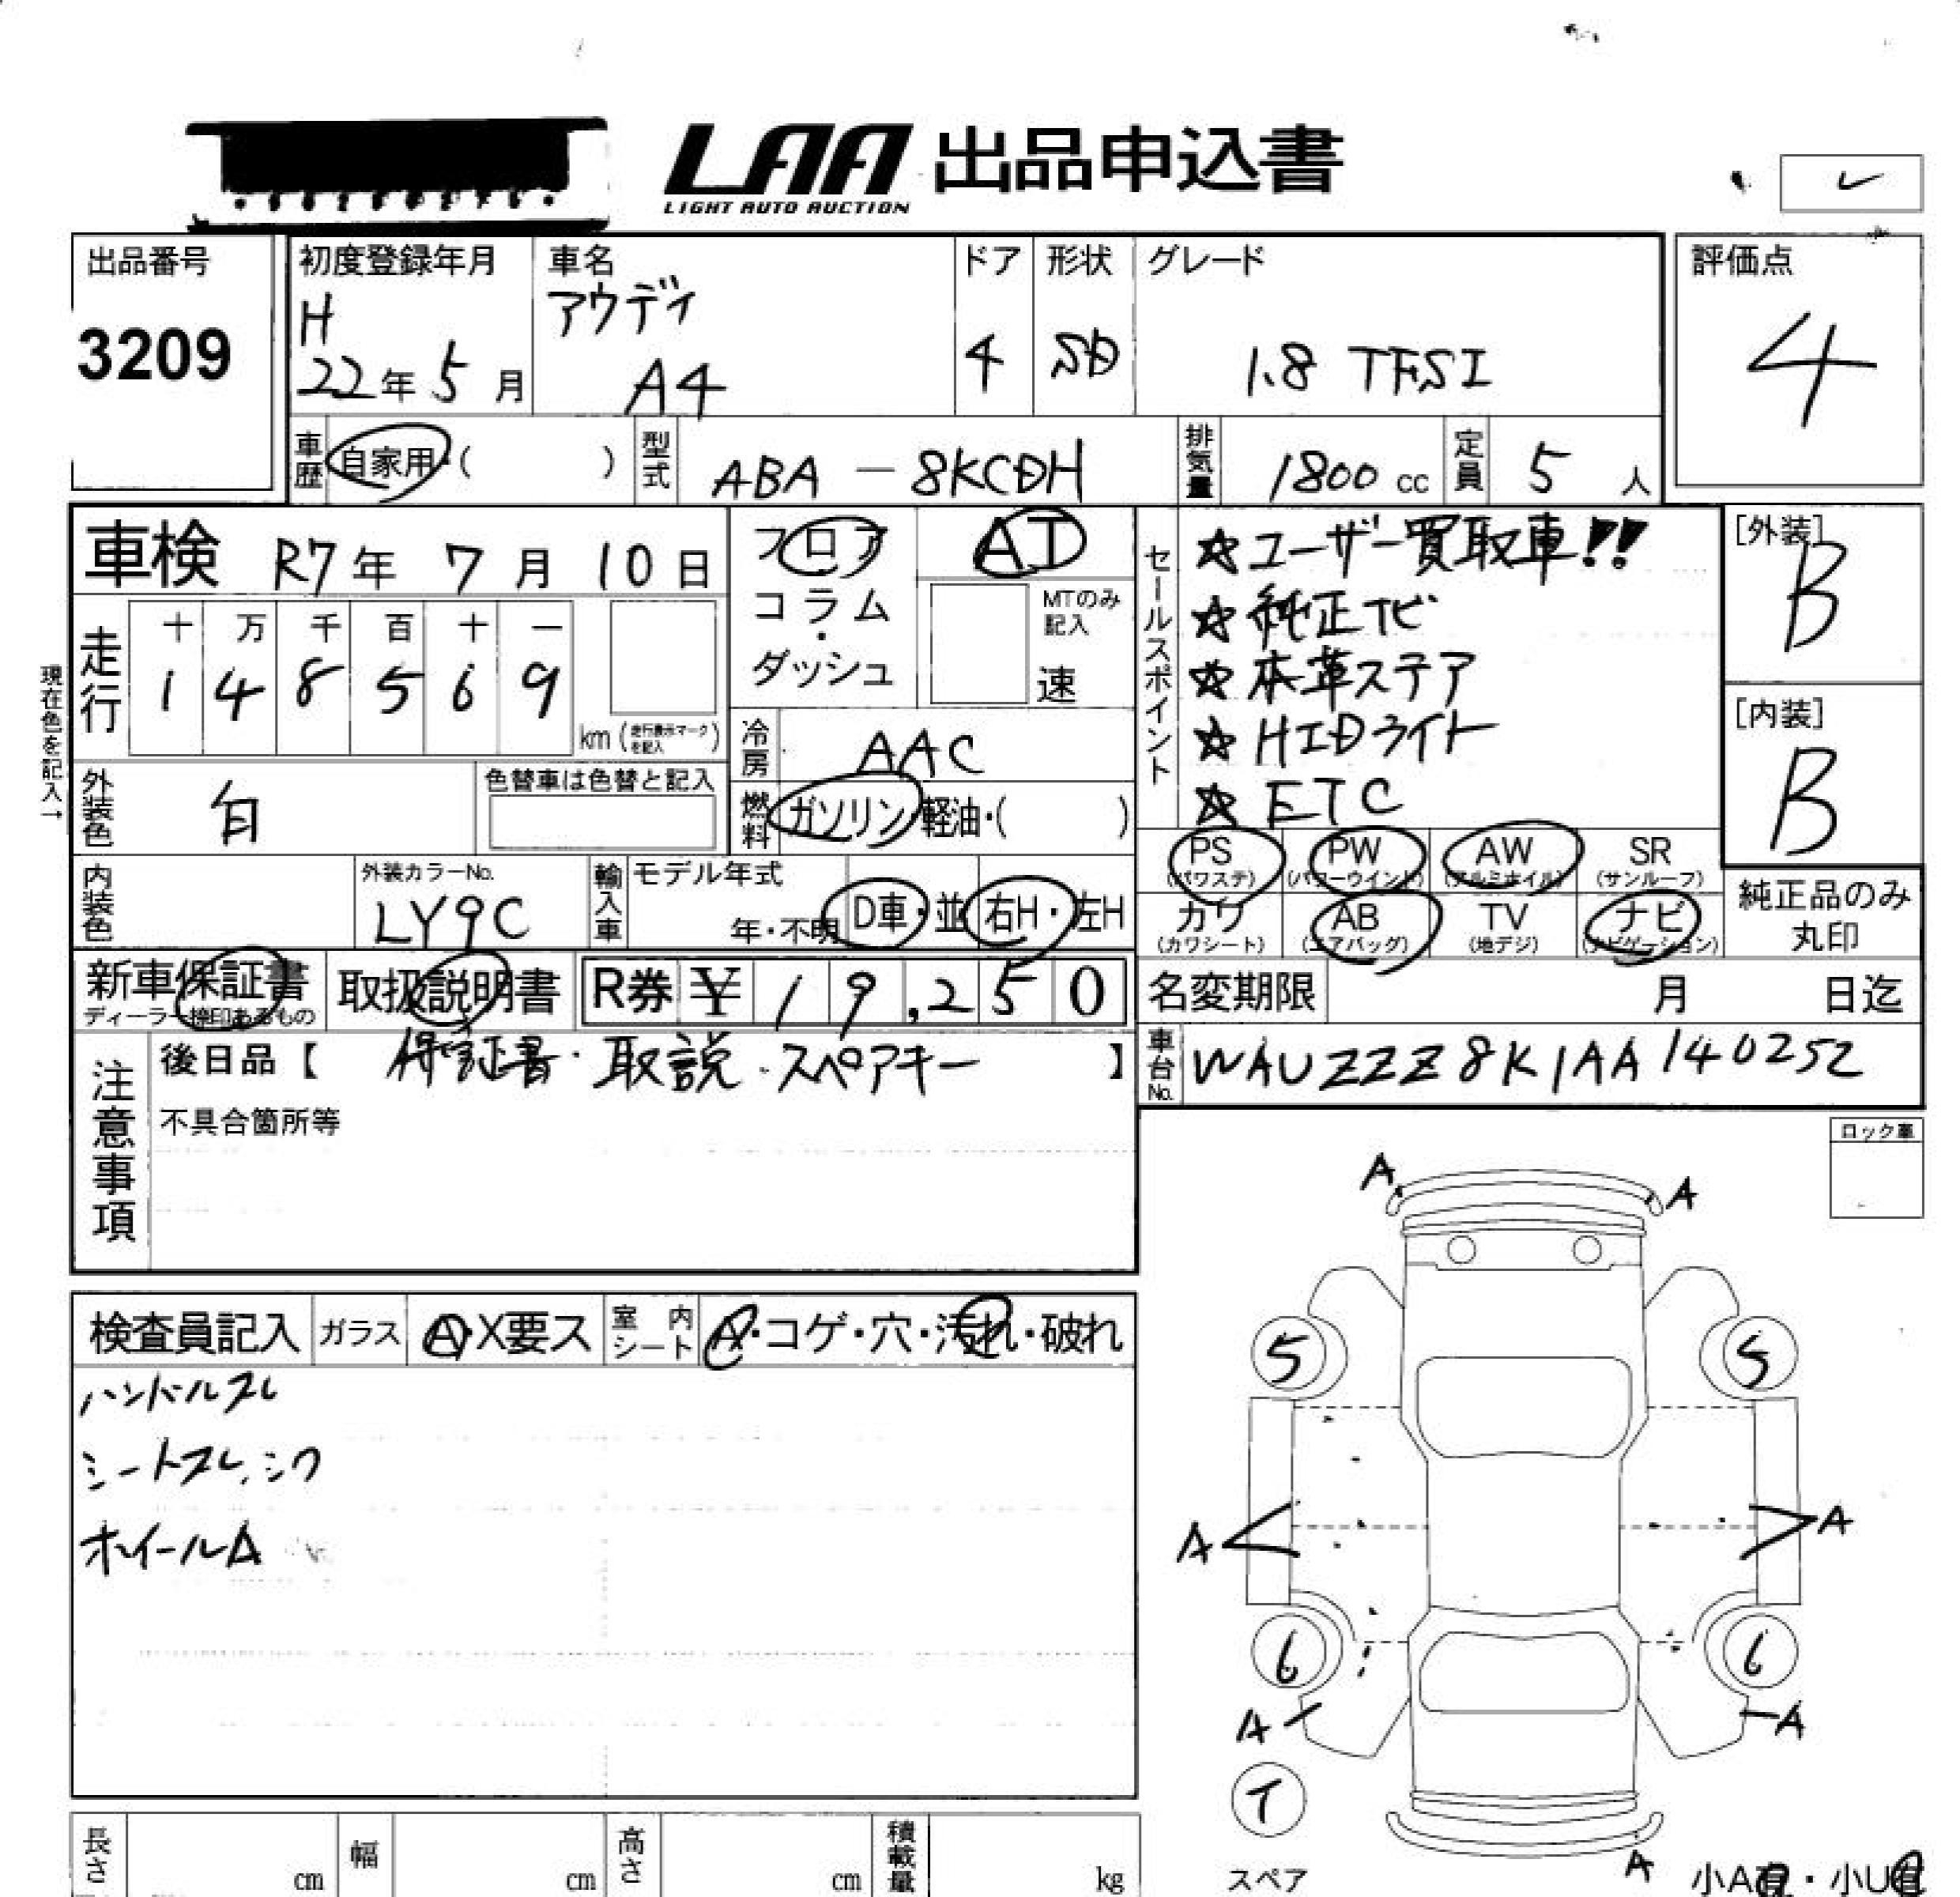 LAA 出品申込書
LIGHT AUTO AUCTION
出品番号
3209
初度登録年月
H
22年 5月
車名
アウディ
A4
ドア
4
形状
SD
グレード
1.8 TFSI
評価点
4
車歴
自家用・( )
型式
ABA-8KCDH
排気量
1800 cc
定員
5 人
車検 R7年 7月 10日
現在色を記入→
走行
十 万 千 百 十 一
1 4 8 5 6 9
km (走行表示マークを記入)
フロア
コラム
・
ダッシュ
AT
MTのみ
記入
速
冷房
AAC
燃料
ガソリン・軽油・( )
外装色
白
色替車は色替と記入
内装色
外装カラーNo.
LY9C
輸入車
モデル年式
年・不明
D車・並
右H・左H
セールスポイント
☆ユーザー買取車!!
☆純正ナビ
☆本革ステア
☆HIDライト
☆ETC
[外装]
B
[内装]
B
PS
(パワステ)
PW
(パワーウインド)
AW
(アルミホイル)
SR
(サンルーフ)
カワ
(カワシート)
AB
(エアバッグ)
TV
(地デジ)
ナビ
(ナビゲーション)
純正品のみ
丸印
新車保証書
ディーラー捺印あるもの
取扱説明書
R券 ¥ 19,250
名変期限 月 日迄
車台No.
WAUZZZ8K1AA140252
注意事項
後日品【 保証書・取説・スペアキー 】
不具合箇所等
ロック車
検査員記入
ガラス
A・X要ス
室内
シート
A・コゲ・穴・汚れ・破れ
ハンドルスレ
シートスレ、シワ
ホイールA
A
A
5
5
A
A
6
6
A
A
T
スペア
A
小A有・小U有
長さ cm
幅 cm
高さ cm
積載量 kg